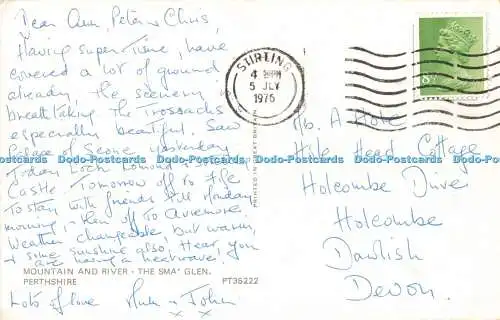 Dear Ann, Peter & Chris,
Having super time, have
covered a lot of ground
already the scenery is
breathtaking the Trossachs
especially beautiful. Saw
Palace of Scone yesterday
Today Loch Lomond &
Castle. Tomorrow off to Fife
to stay with friends till Monday
morning, then off to Aviemore.
Weather changeable but warm,
& some sunshine also; Hear you
are having a heatwave!
Lots of love & John
x x
MOUNTAIN AND RIVER - THE SMA' GLEN,
PERTHSHIRE
PT36222
PRINTED IN GREAT BRITAIN
STIRLING
4 PM
5 JLY
1976
A Hole
Hole Head Cottage
Holcombe Drive
Holcombe
Dawlish
Devon.
Dodo-Postcards Dodo-Postcards Dodo-Postcards Dodo-Postcards Dodo-Postcards Dodo-Postcards